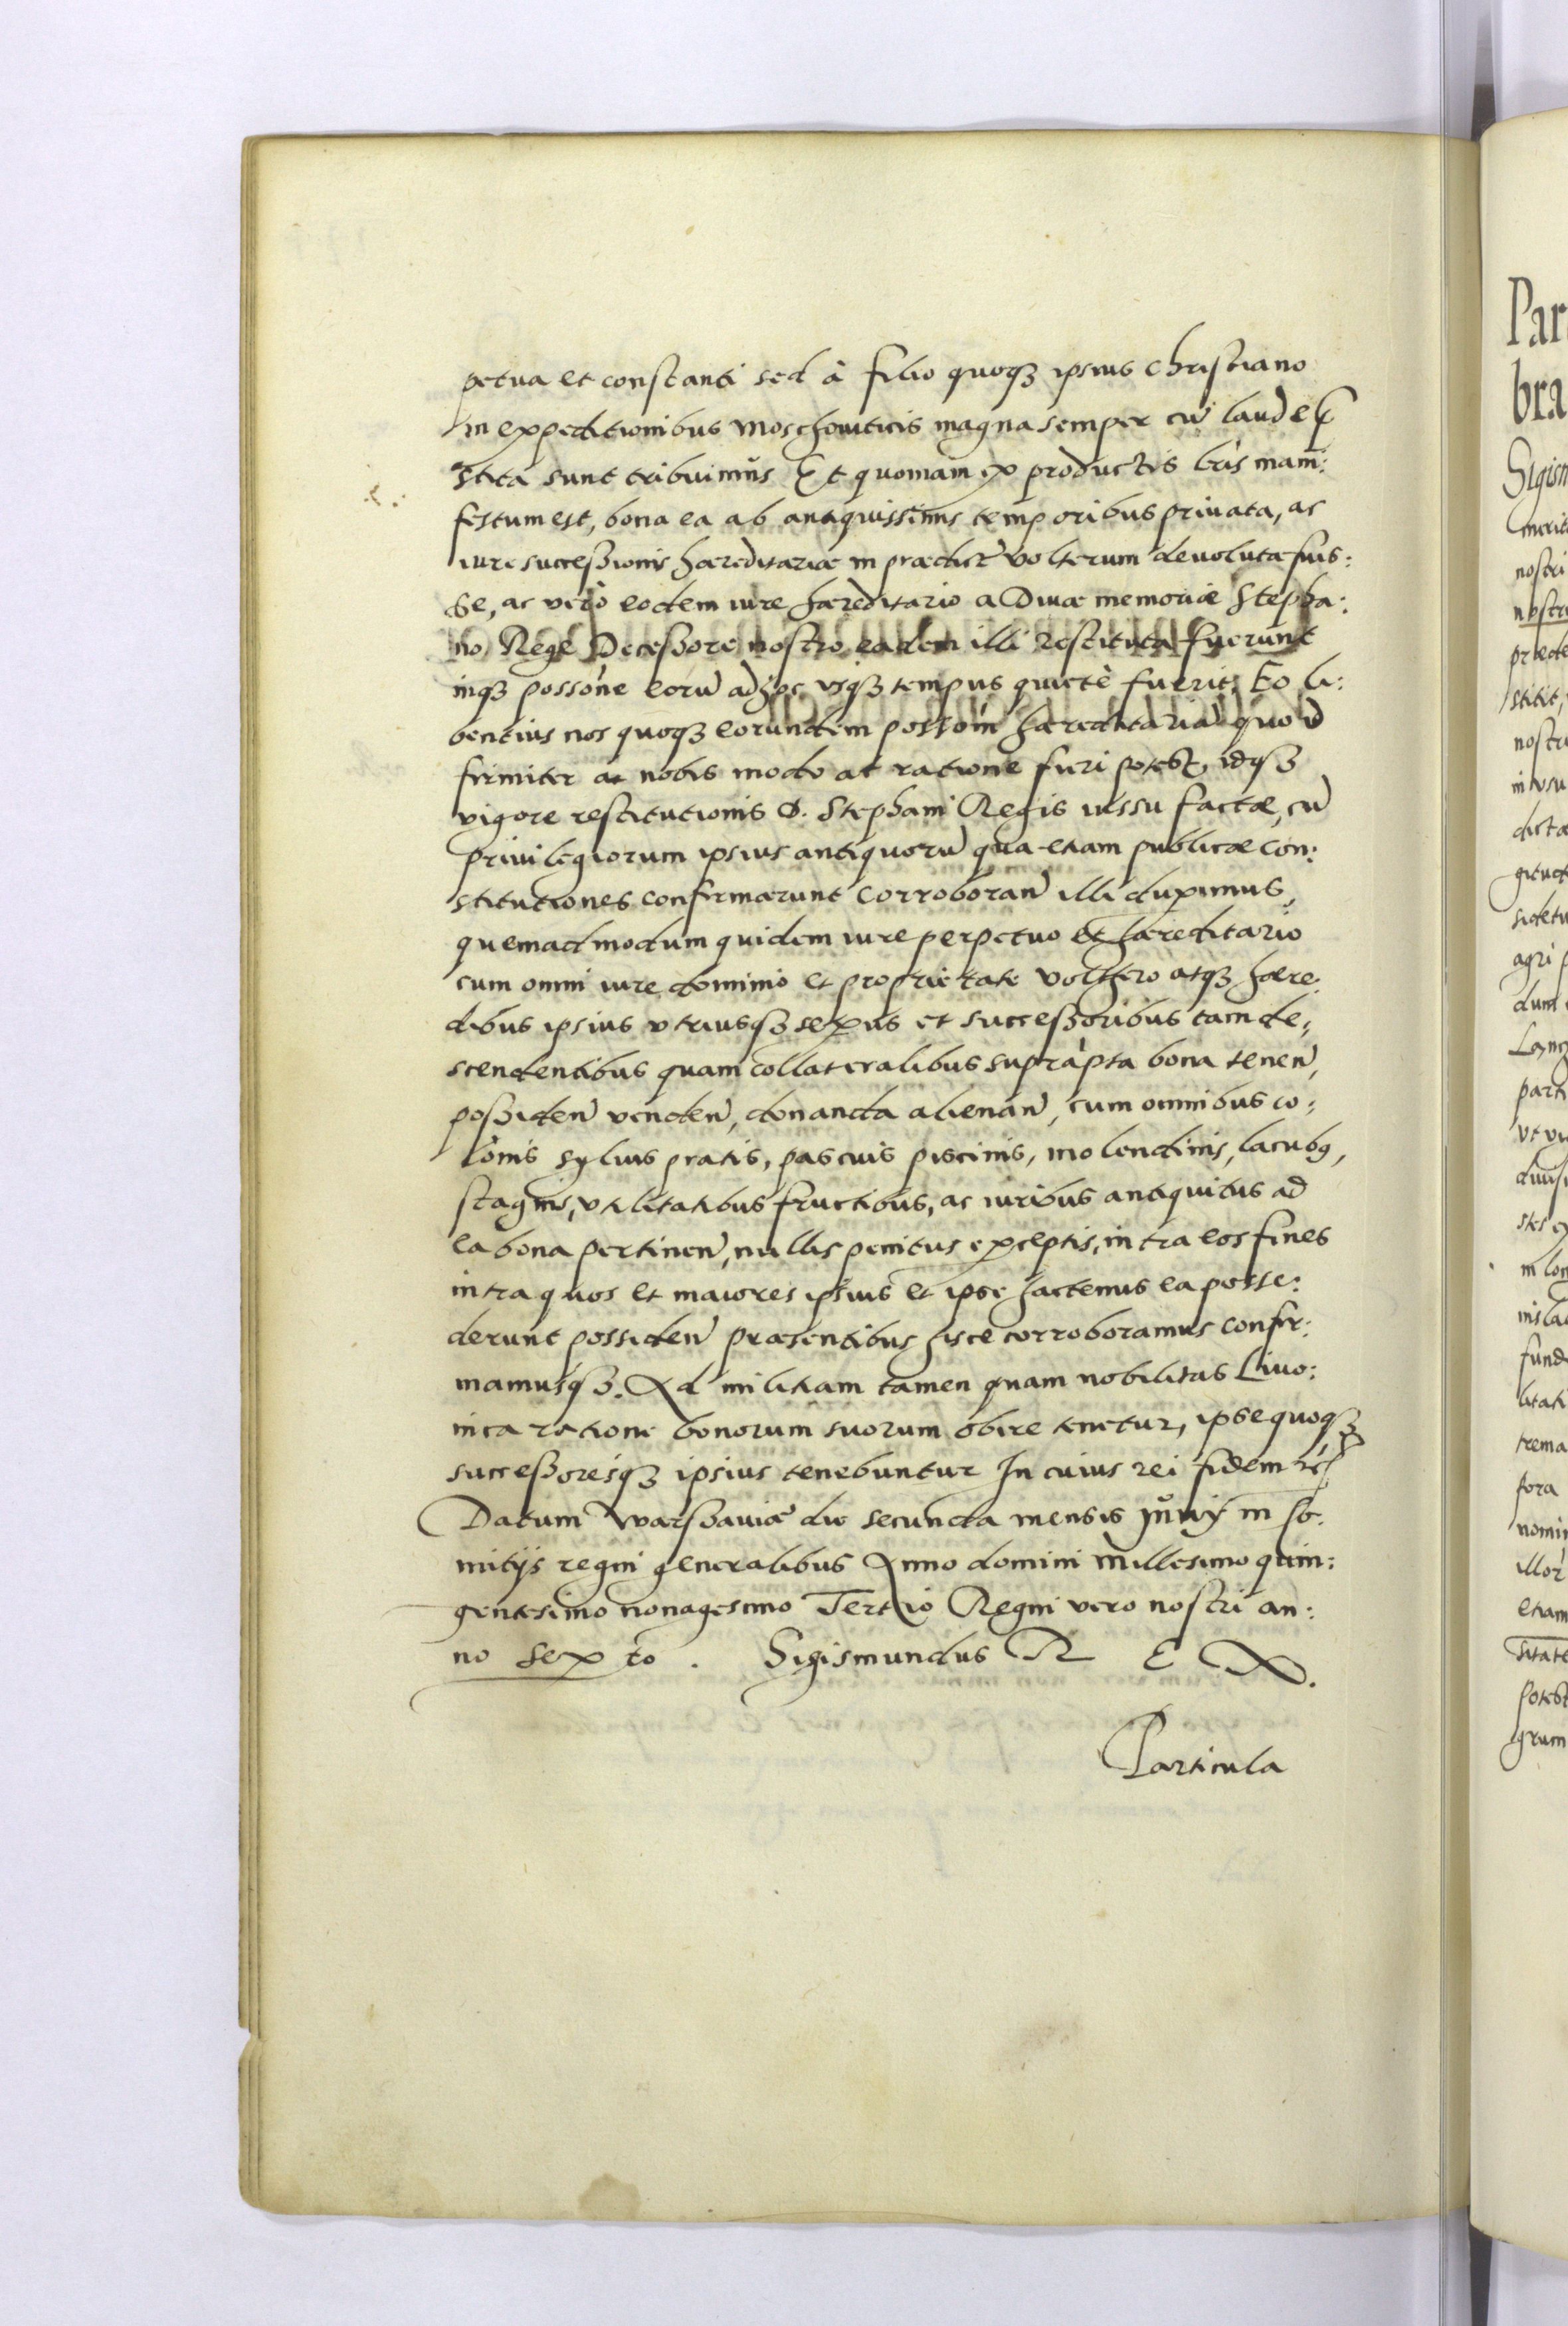 petua et constanti sed à filio quoqȝ ipsius Christiano
in expeditionibus Moschoviticis magna semper cū laude p̄
stita sunt tribuimus Et quoniam ex productis lr̄is mani:
festum est, bona ea ab antiquissimis temporibus privata, ac
iure successionis hæreditariæ in prædict̄ Volterum devoluta fuis:
se, ac vero eodem iure hæreditario a Divæ memoriæ Stepha:
no Rege Decessore nostro eadem illi restituta fuerunt
inqȝ possone eorū adhoc vsqȝ tempus quietè fuerit, Eo li:
bentius nos quoqȝ eorundem possom̄ hæreditariā quod
firmiter a nobis modo ac ratione fieri potest, idqȝ
vigore restitutionis D. Stephani Regis iussu factæ, cū
privilegiorum ipsius antiquorū qua etiam publicæ con:
stitutiones confirmarunt corroboran̄ illi duximus,
quemadmodum quidem iure perpetuo et hæreditario
cum omni iure dominio et proprietate Volthero atqȝ hære:
dibus ipsius vtriusqȝ sexus et successoribus tam de:
scendentibus quam collateralibus suprapta bona tenen̄,
possiden̄ venden̄, donanda alienan̄, cum omnibus co:
lonis sylvis pratis, pascuis piscinis, molendinis, lacubq,
stagnis, vtilitatibus fructibus, ac iuribus antiquitus ad
ea bona pertinen̄, nullis penitus exceptis, intra eos fines
intra quos et maiores ipsius et ipse hactenus ea posse:
derunt possiden̄ præsentibus hisce corroboramus confir:
mamusqȝ. Ad militiam tamen quam nobilitas Livo:
nica ratione bonorum suorum obire tenetur, ipse quoqȝ
successoresqȝ ipsius tenebuntur In cuius rei fidem etc
Datum Warssaviæ die secunda mensis Junij in Co:
mitijs regni generalibus Anno domini millesimo quin:
gentesimo nonagesimo Tertio Regni vero nostri an:
no sexto. Sigismundus R E X.
Particula
Par
bra
Sigism
merit
nostri
nostro
præde
stitit,
nostri
in vsu
dicta
situ
sidetu
agri p
dum
parti
vt
stes ex
in lon
nis la
fund
litati
trema
fora
nomin
illor
etiam
sitate
potest
grum